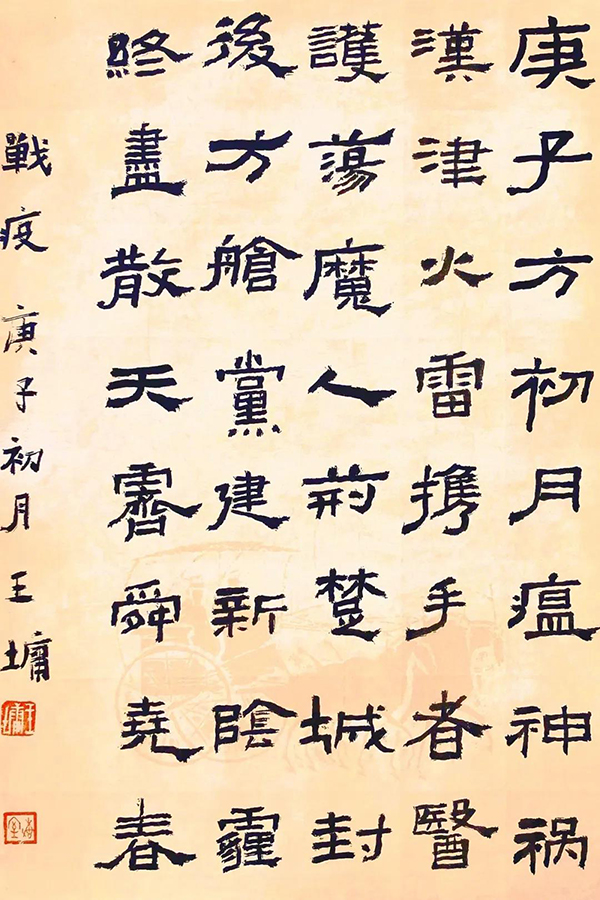 庚子方初月瘟神祸
漢津火雷携手者醫
護蕩魔人荊楚城封
後方艙黨建新陰霾
終盡散天霽舜堯春
戰疫 庚子初月王墉